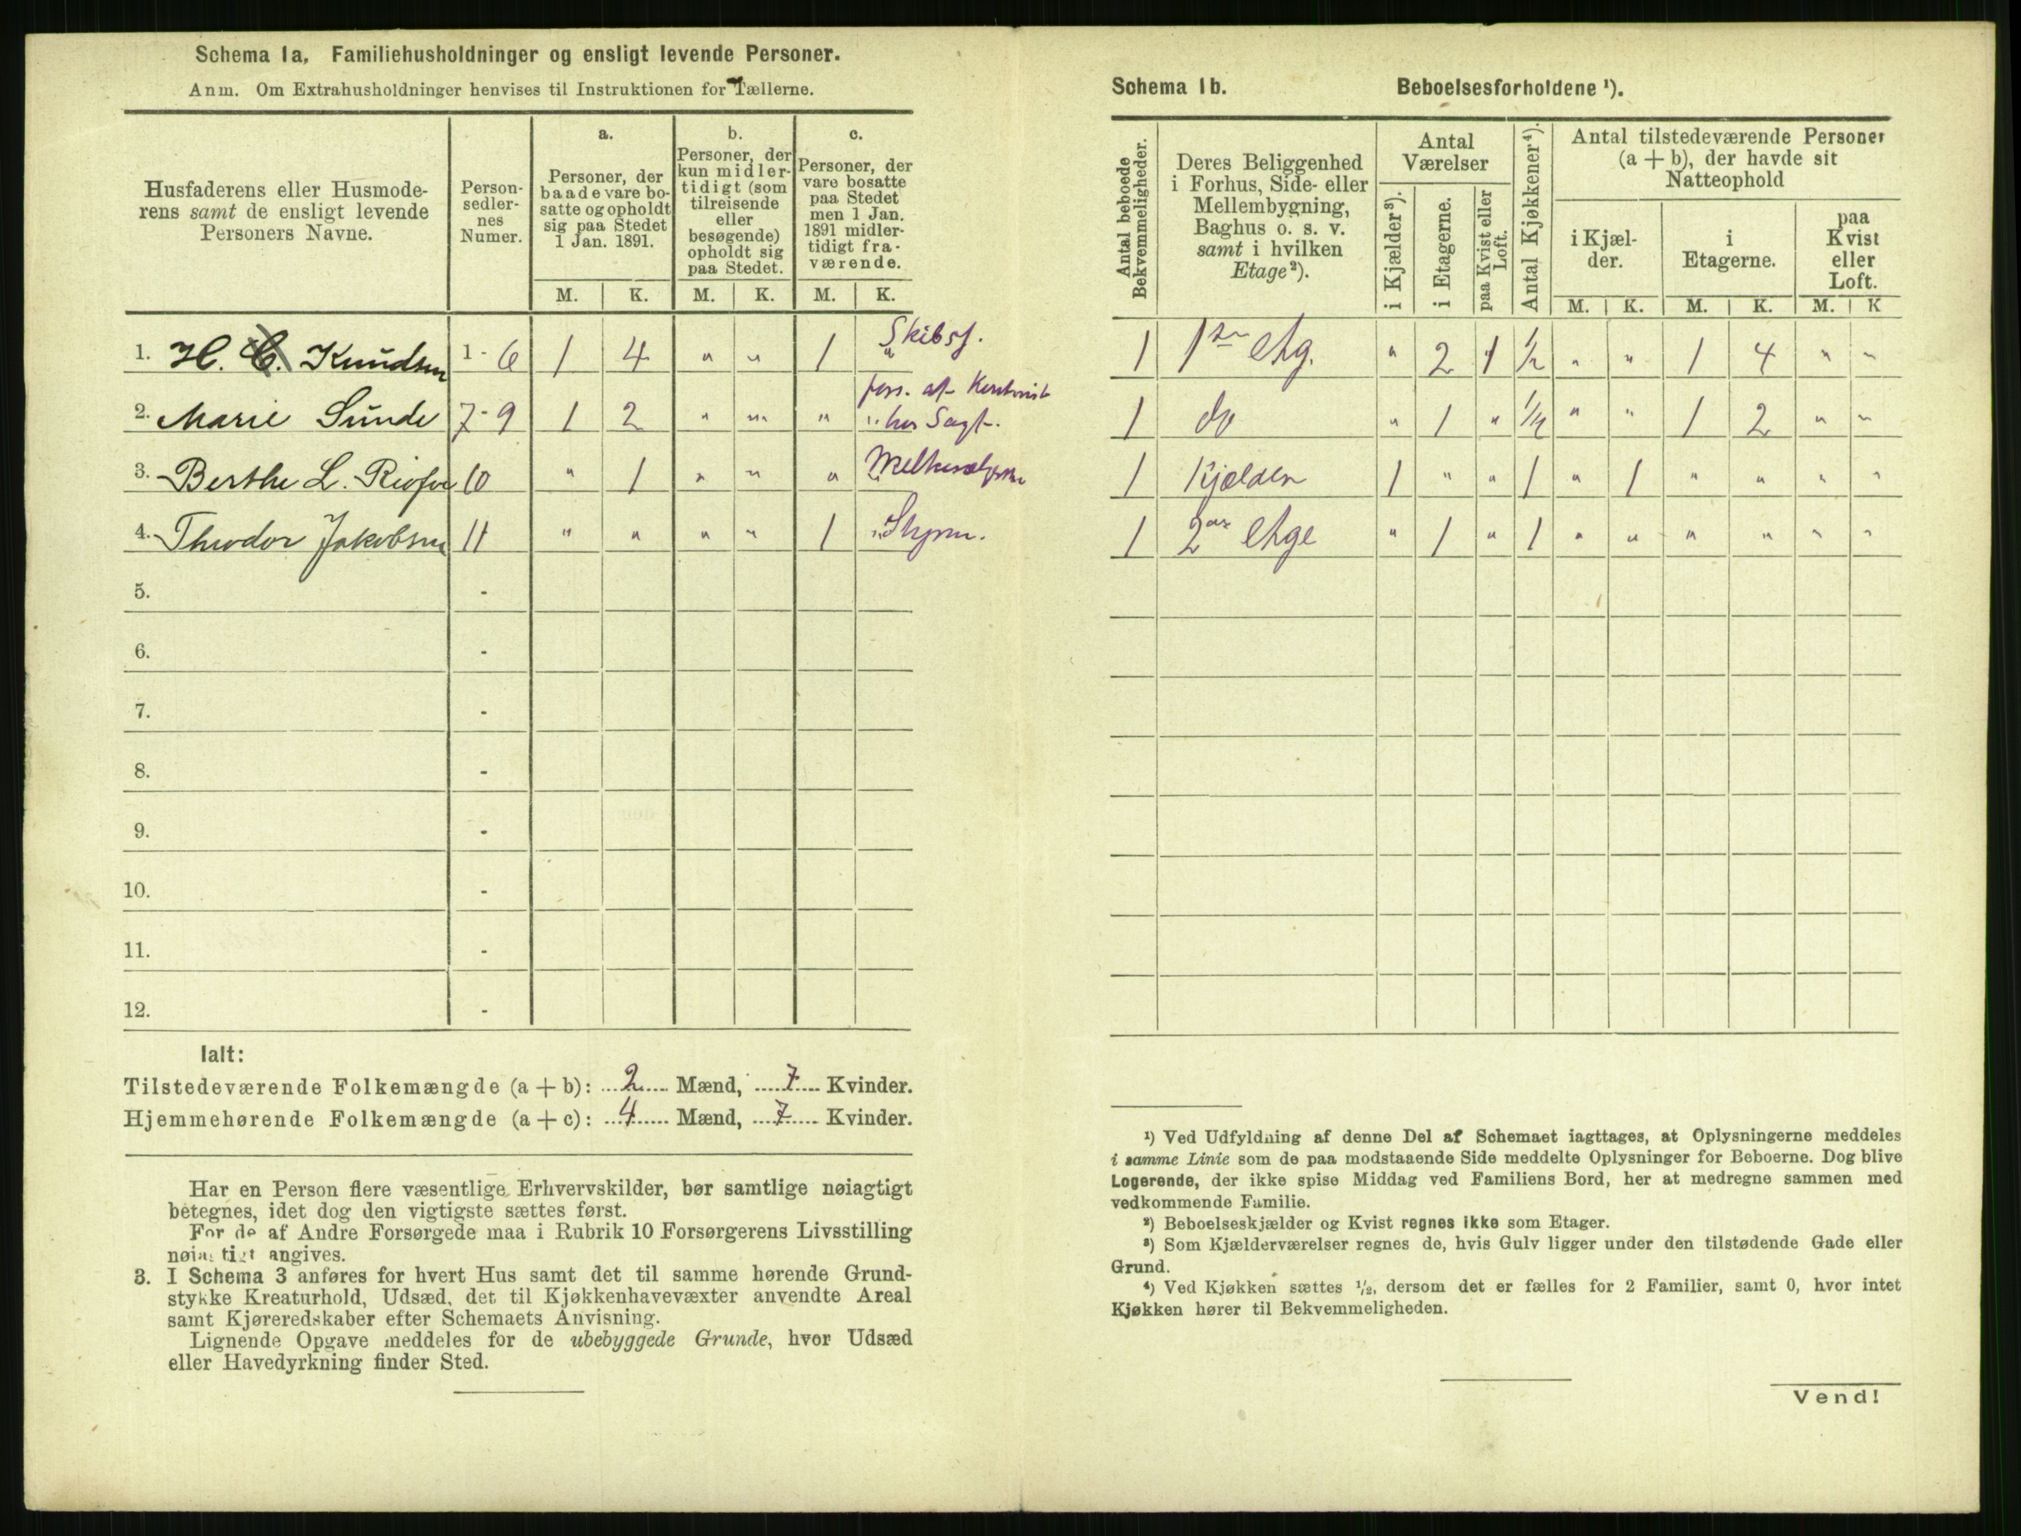 Schema 1a, Familiehusholdninger og ensligt levende Personer.
Anm. Om Extrahusholdninger henvises til Instruktionen for Tællerne.
Husfaderens eller Husmode-
rens samt de ensligt levende
Personers Navne.
Person-
sedler-
nes
Numer.
a.
Personer, der
baade vare bo-
satte og opholdt
sig paa Stedet
1 Jan. 1891.
b.
Personer, der
kun midler-
tidigt (som
tilreisende
eller
besøgende)
opholdt sig
paa Stedet.
c.
Personer, der
vare bosatte
paa Stedet
men 1 Jan.
1891 midler-
tidigt fra-
værende.
M. K. M. K. M. K.
1. H. C. Knudsen 1 - 6 1 4 " " 1 " Skibsf.
2. Marie Sunde 7 - 9 1 2 " " " " pers. af hos Sagf.
3. Berthe L. 10 " 1 " " " "
4. Theodor Jakobsen 11 " " " " 1 "
5. -
6. -
7. -
8. -
9. -
10. -
11. -
12. -
Ialt:
Tilstedeværende Folkemængde (a + b): 2 Mænd, 7 Kvinder.
Hjemmehørende Folkemængde (a + c): 4 Mænd, 7 Kvinder.
Har en Person flere væsentlige Erhvervskilder, bør samtlige nøiagtigt
betegnes, idet dog den vigtigste sættes først.
For de af Andre Forsørgede maa i Rubrik 10 Forsørgerens Livsstilling
nøiagtigt angives.
3. I Schema 3 anføres for hvert Hus samt det til samme hørende Grund-
stykke Kreaturhold, Udsæd, det til Kjøkkenhavevæxter anvendte Areal
samt Kjøreredskaber efter Schemaets Anvisning.
Lignende Opgave meddeles for de ubebyggede Grunde, hvor Udsæd
eller Havedyrkning finder Sted.
Schema 1b. Beboelsesforholdene ¹).
Antal beboede
Bekvemmeligheder.
Deres Beliggenhed
i Forhus, Side- eller
Mellembygning,
Baghus o. s. v.
samt i hvilken
Etage ²).
Antal
Værelser
i Kjælder ³).
i Etagerne.
paa Kvist eller
Loft.
Antal Kjøkkener ⁴).
Antal tilstedeværende Personer
(a + b), der havde sit
Natteophold
i Kjæl-
der.
i
Etagerne.
paa
Kvist
eller
Loft.
M. K. M. K. M. K
1 1ste Etg. " 2 1 ½ " " 1 4 " "
1 do " 1 " ½ " " 1 2 " "
1 Kjælder 1 " " 1 " 1 " " " "
1 2den Etge " 1 " 1 " " " " " "
¹) Ved Udfyldning af denne Del af Schemaet iagttages, at Oplysningerne meddeles
i samme Linie som de paa modstaaende Side meddelte Oplysninger for Beboerne. Dog blive
Logerende, der ikke spise Middag ved Familiens Bord, her at medregne sammen med
vedkommende Familie.
²) Beboelseskjælder og Kvist regnes ikke som Etager.
³) Som Kjælderværelser regnes de, hvis Gulv ligger under den tilstødende Gade eller
Grund.
⁴) Ved Kjøkken sættes ½, dersom det er fælles for 2 Familier, samt 0, hvor intet
Kjøkken hører til Bekvemmeligheden.
Vend!